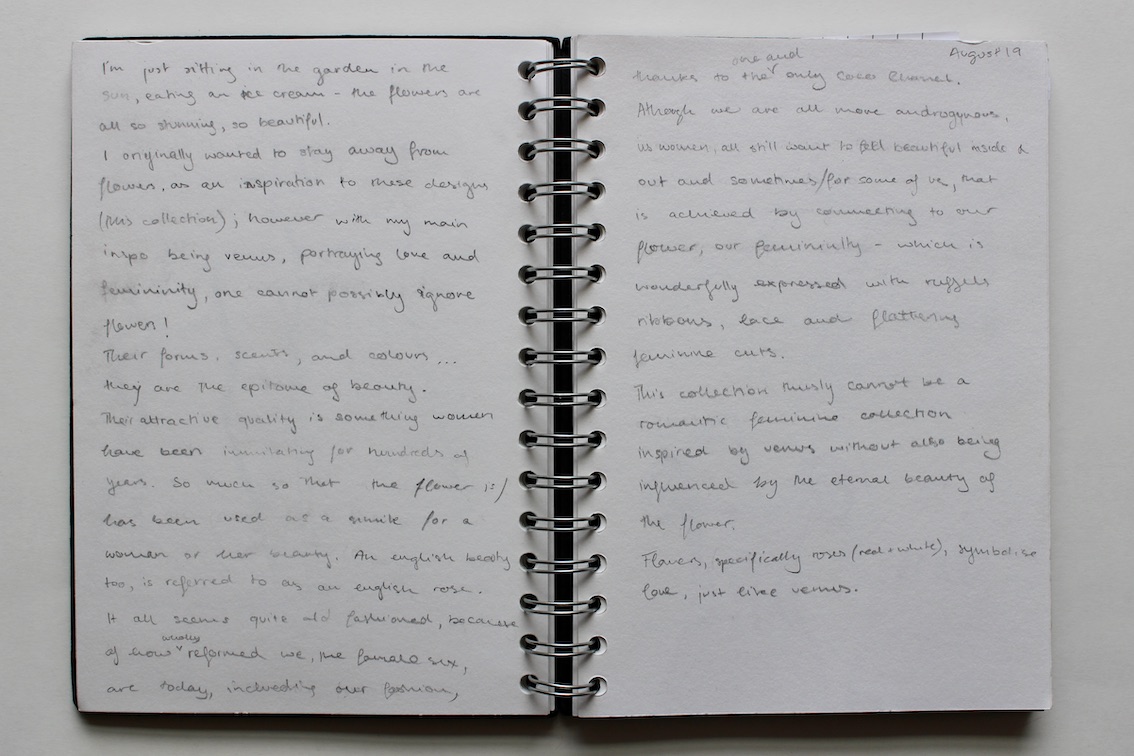 I'm just sitting in the garden in the
sun, eating an ice cream - the flowers are
all so stunning, so beautiful.
I originally wanted to stay away from
flowers, as an inspiration to these designs
(this collection); however with my main
inspo being venus, portraying love and
femininity, one cannot possibly ignore
flowers!
Their forms, scents, and colours...
they are the epitome of beauty.
Their attractive quality is something women
have been immitating for hundreds of
years. So much so that the flower is/
has been used as a simile for a
woman or her beauty. An english beauty
too, is referred to as an english rose.
It all seems quite old fashioned, because
of how reformed we, the female sex,
are today, including our fashion,
August 19
one and
thanks to the only Coco Chanel.
Although we are all more androgynous,
us women, all still want to feel beautiful inside &
out and sometimes/for some of us, that
is achieved by connecting to our
flower, our femininity - which is
wonderfully expressed with ruffels
ribbons, lace and flattering
feminine cuts.
This collection thusly cannot be a
romantic feminine collection
inspired by venus without also being
influenced by the eternal beauty of
the flower.
Flowers, specifically roses (red + white), symbolise
love, just like venus.